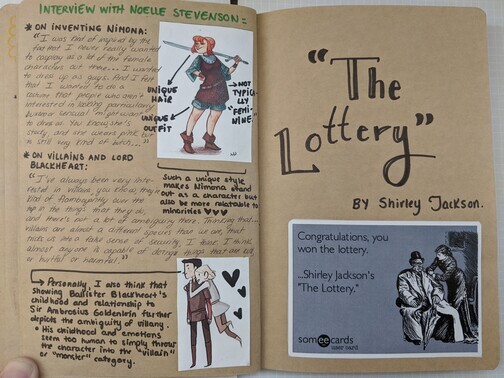 INTERVIEW WITH NOELLE STEVENSON:
* ON INVENTING NIMONA:
"I was kind of inspired by the
fact that I never really wanted
to cosplay as a lot of the female
characters out there... I wanted
to dress up as guys. And I felt
that I wanted to do a
woman that people who aren't
interested in looking particularly
sexy or sensual might want
to dress as. You know she's
study, and she wears pink but
is still very kind of butch..."
UNIQUE
HAIR
UNIQUE
OUTFIT
NOT
TYPICA
LLY
"FEMI-
NINE"
* ON VILLAINS AND LORD
BLACKHEART:
"I've always been very inte-
rested in villains, you know, they're
kind of flamboyantly over the
top in the things that they do,
and there's a lot of ambiguity there. Thinking that
villains are almost a different species than us are, that
lulls us into a false sense of security. I think I think
almost anyone is capable of doing things that are evil
or hurtful or harmful."
Such a unique style
makes Nimona stand
out as a character but
also be more relatable to
minorities
Personally, I also think that
showing Ballister Blackheart's
childhood and relationship to
Sir Ambrosius Goldenloin further
depicts the ambiguity of villany.
• His childhood and emotions
seem too human to simply throw
the character into the "villain"
or "monster" category.
"The
Lottery"
BY Shirley Jackson.
Congratulations, you
won the lottery.
...Shirley Jackson's
"The Lottery."
someecards
user card